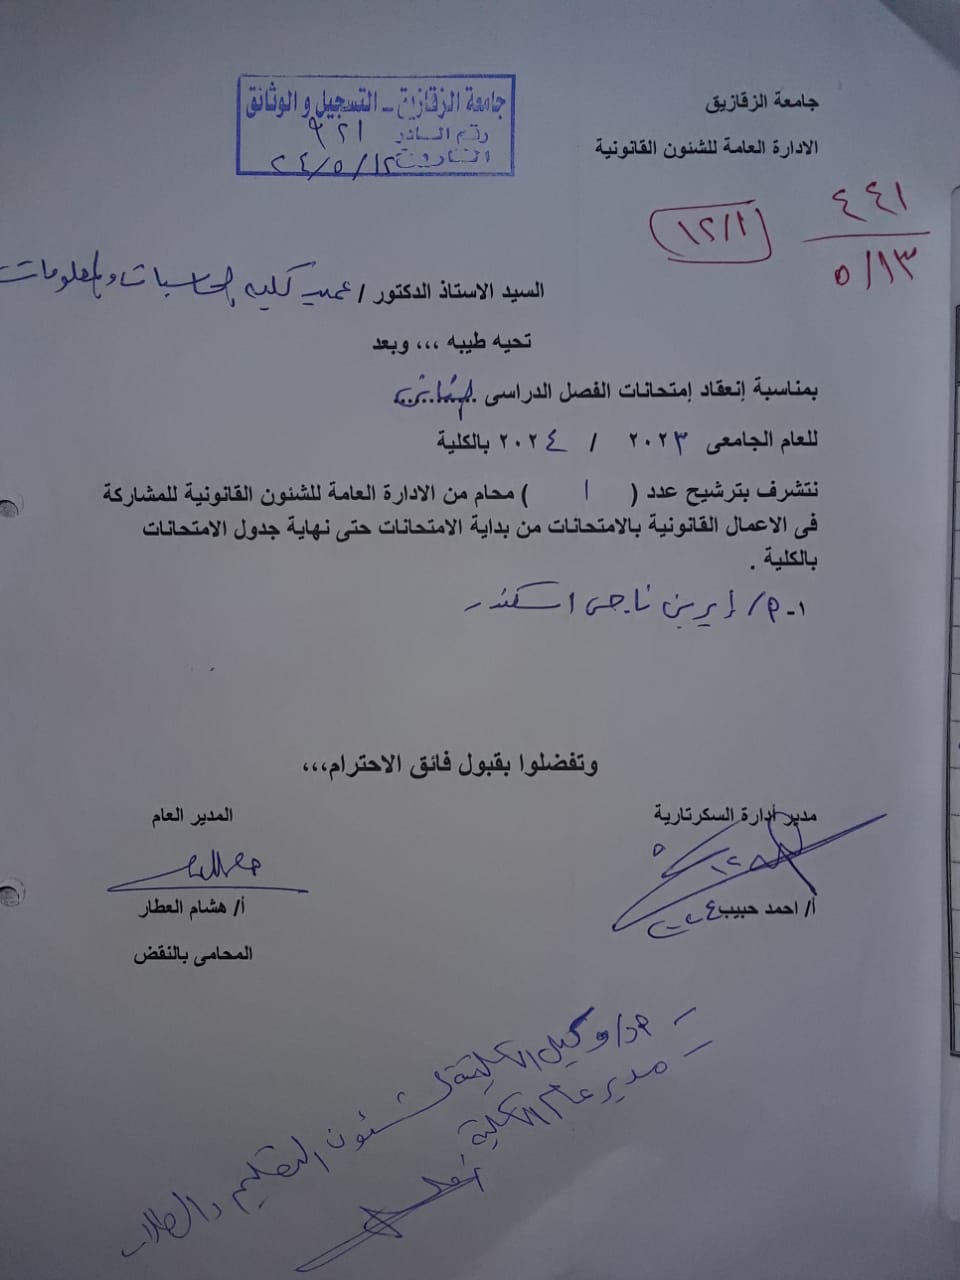 جامعة الزقازيق
الادارة العامة للشئون القانونية
جامعة الزقازيق - التسجيل والوثائق
رقم الصادر ٩٢١
التاريخ ٢٤/٥/١٢
٤٤١
٥/١٣
١٢/١
السيد الاستاذ الدكتور / عميد كلية الحاسبات والمعلومات
تحيه طيبه ،،، وبعد
بمناسبة إنعقاد إمتحانات الفصل الدراسى الثانى
للعام الجامعى ٢٠٢٣ / ٢٠٢٤ بالكلية
نتشرف بترشيح عدد ( ١ ) محام من الادارة العامة للشئون القانونية للمشاركة
فى الاعمال القانونية بالامتحانات من بداية الامتحانات حتى نهاية جدول الامتحانات
بالكلية .
١- م/ إيرين ناجى اسكندر
وتفضلوا بقبول فائق الاحترام،،،
مدير أدارة السكرتارية
أ/ احمد حبيب
المدير العام
أ/ هشام العطار
المحامى بالنقض
- وكيل الكلية لشئون التعليم والطلاب
- مدير عام الكلية